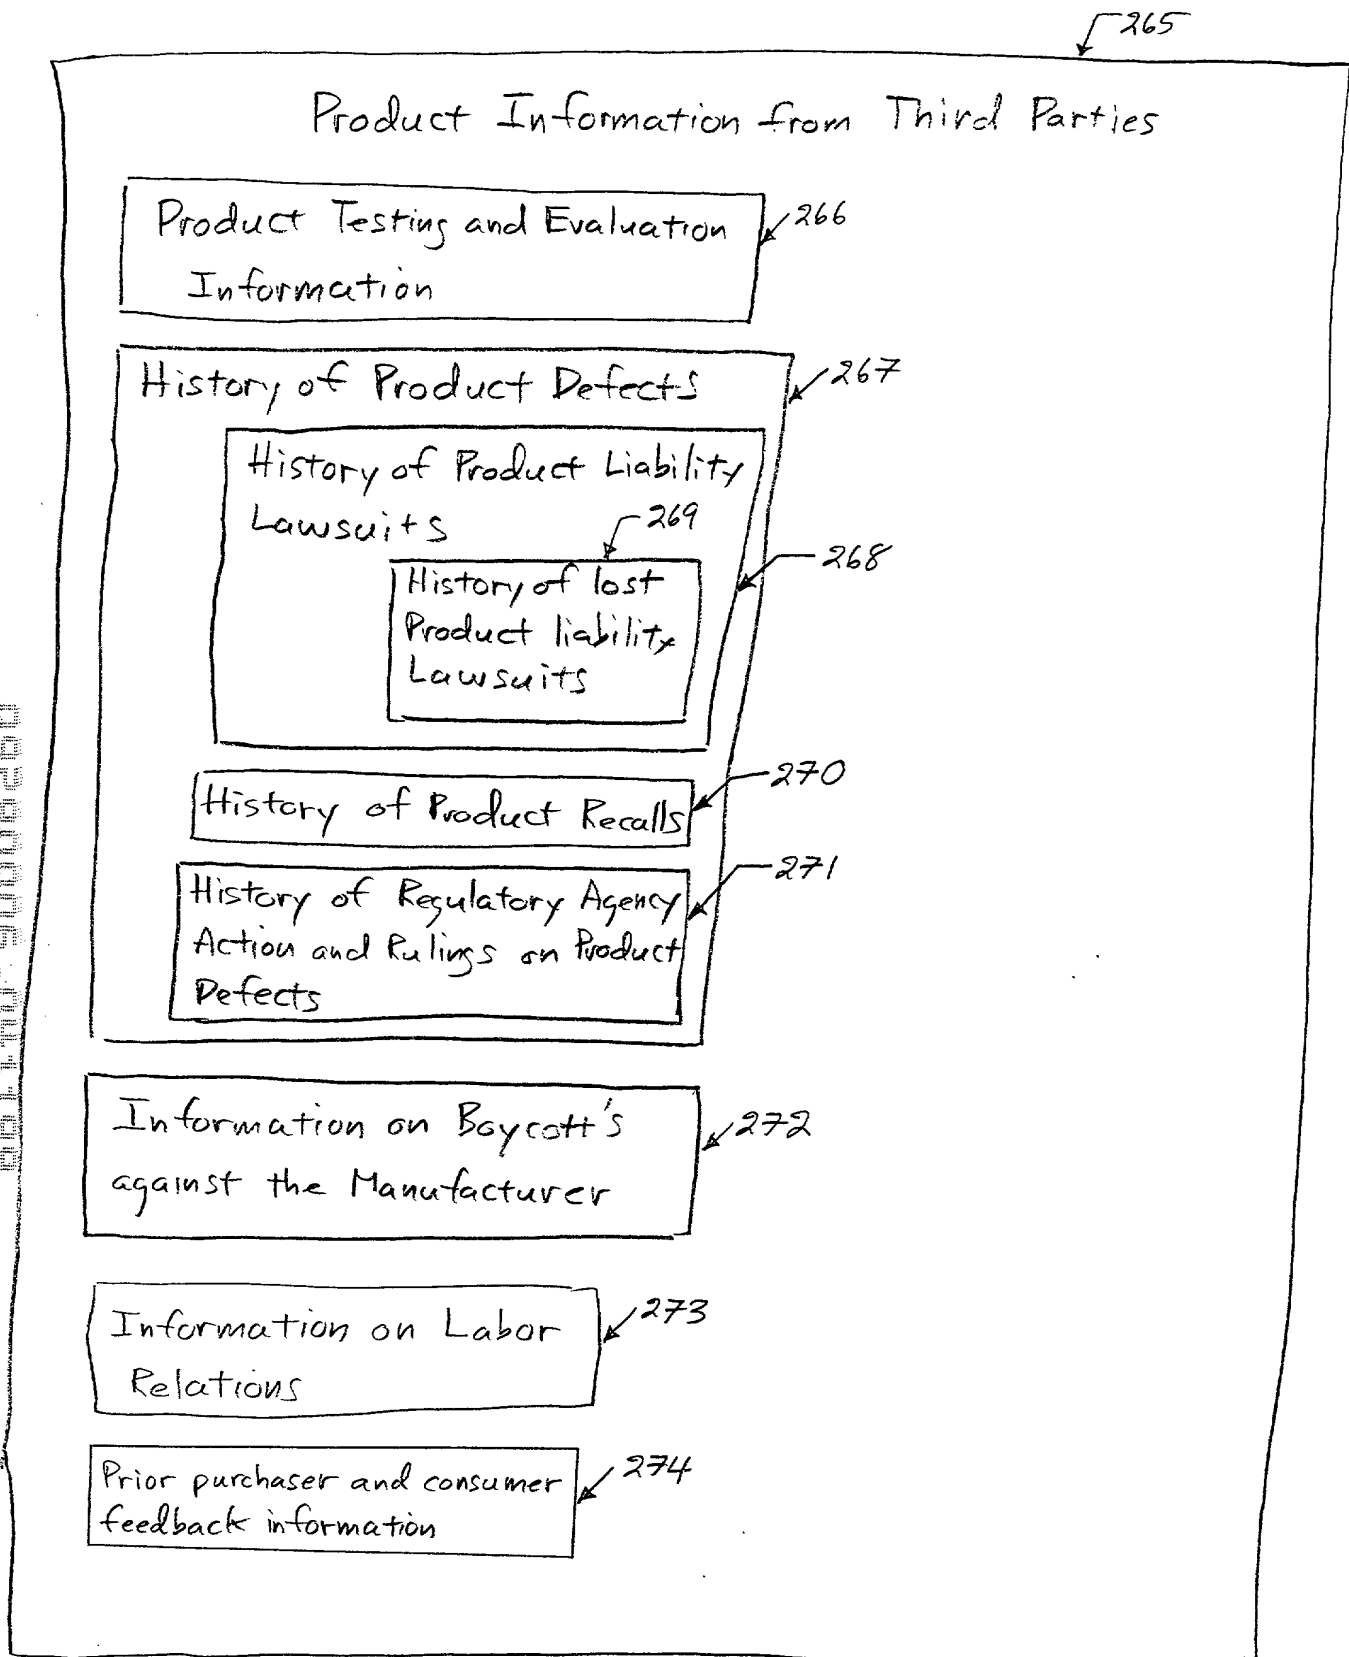 265
Product Information from Third Parties
Product Testing and Evaluation
Information
266
History of Product Defects
267
History of Product Liability
Lawsuits
269
268
History of lost
Product liability
Lawsuits
270
History of Product Recalls
271
History of Regulatory Agency
Action and Rulings on Product
Defects
Information on Boycott's
against the Manufacturer
272
Information on Labor
Relations
273
Prior purchaser and consumer
feedback information
274